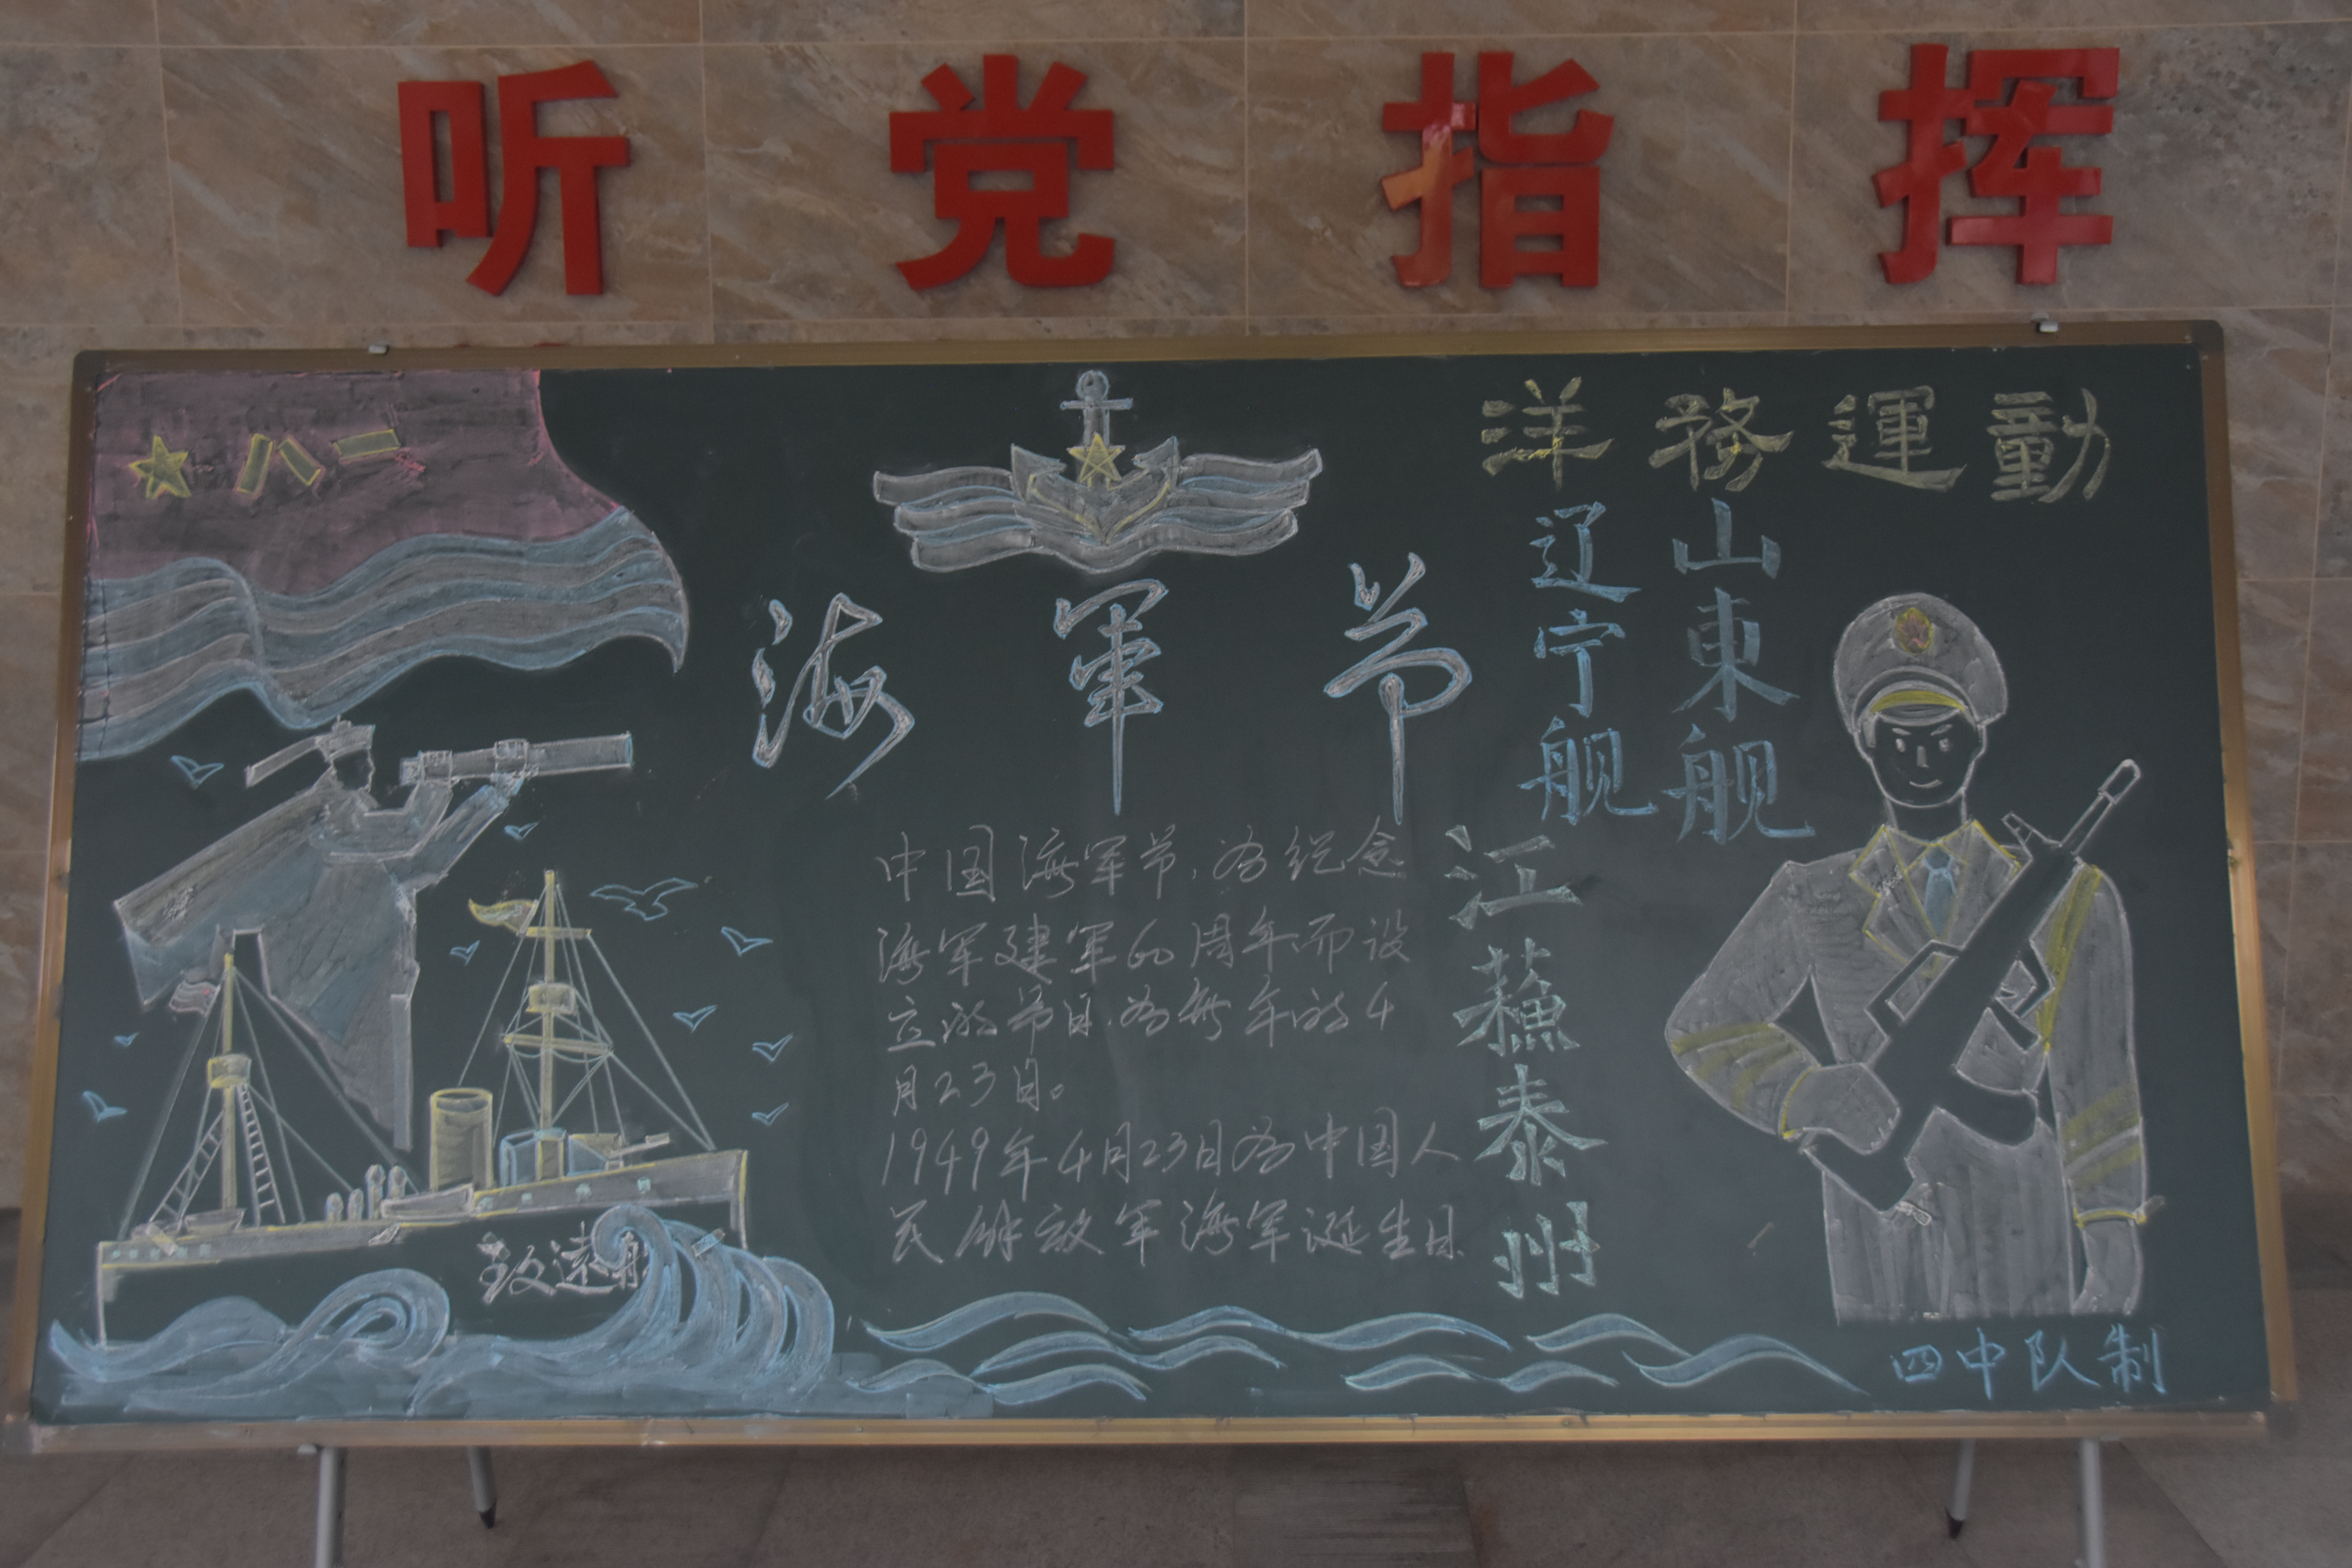 听党指挥
八一
洋務運動
海軍节
辽宁舰
山東舰
江蘓泰州
中国海军节,为纪念
海军建军的周年而设
立的节日,为每年的4
月23日。
1949年4月23日为中国人
民解放军海军诞生日
致远舰
四中队制